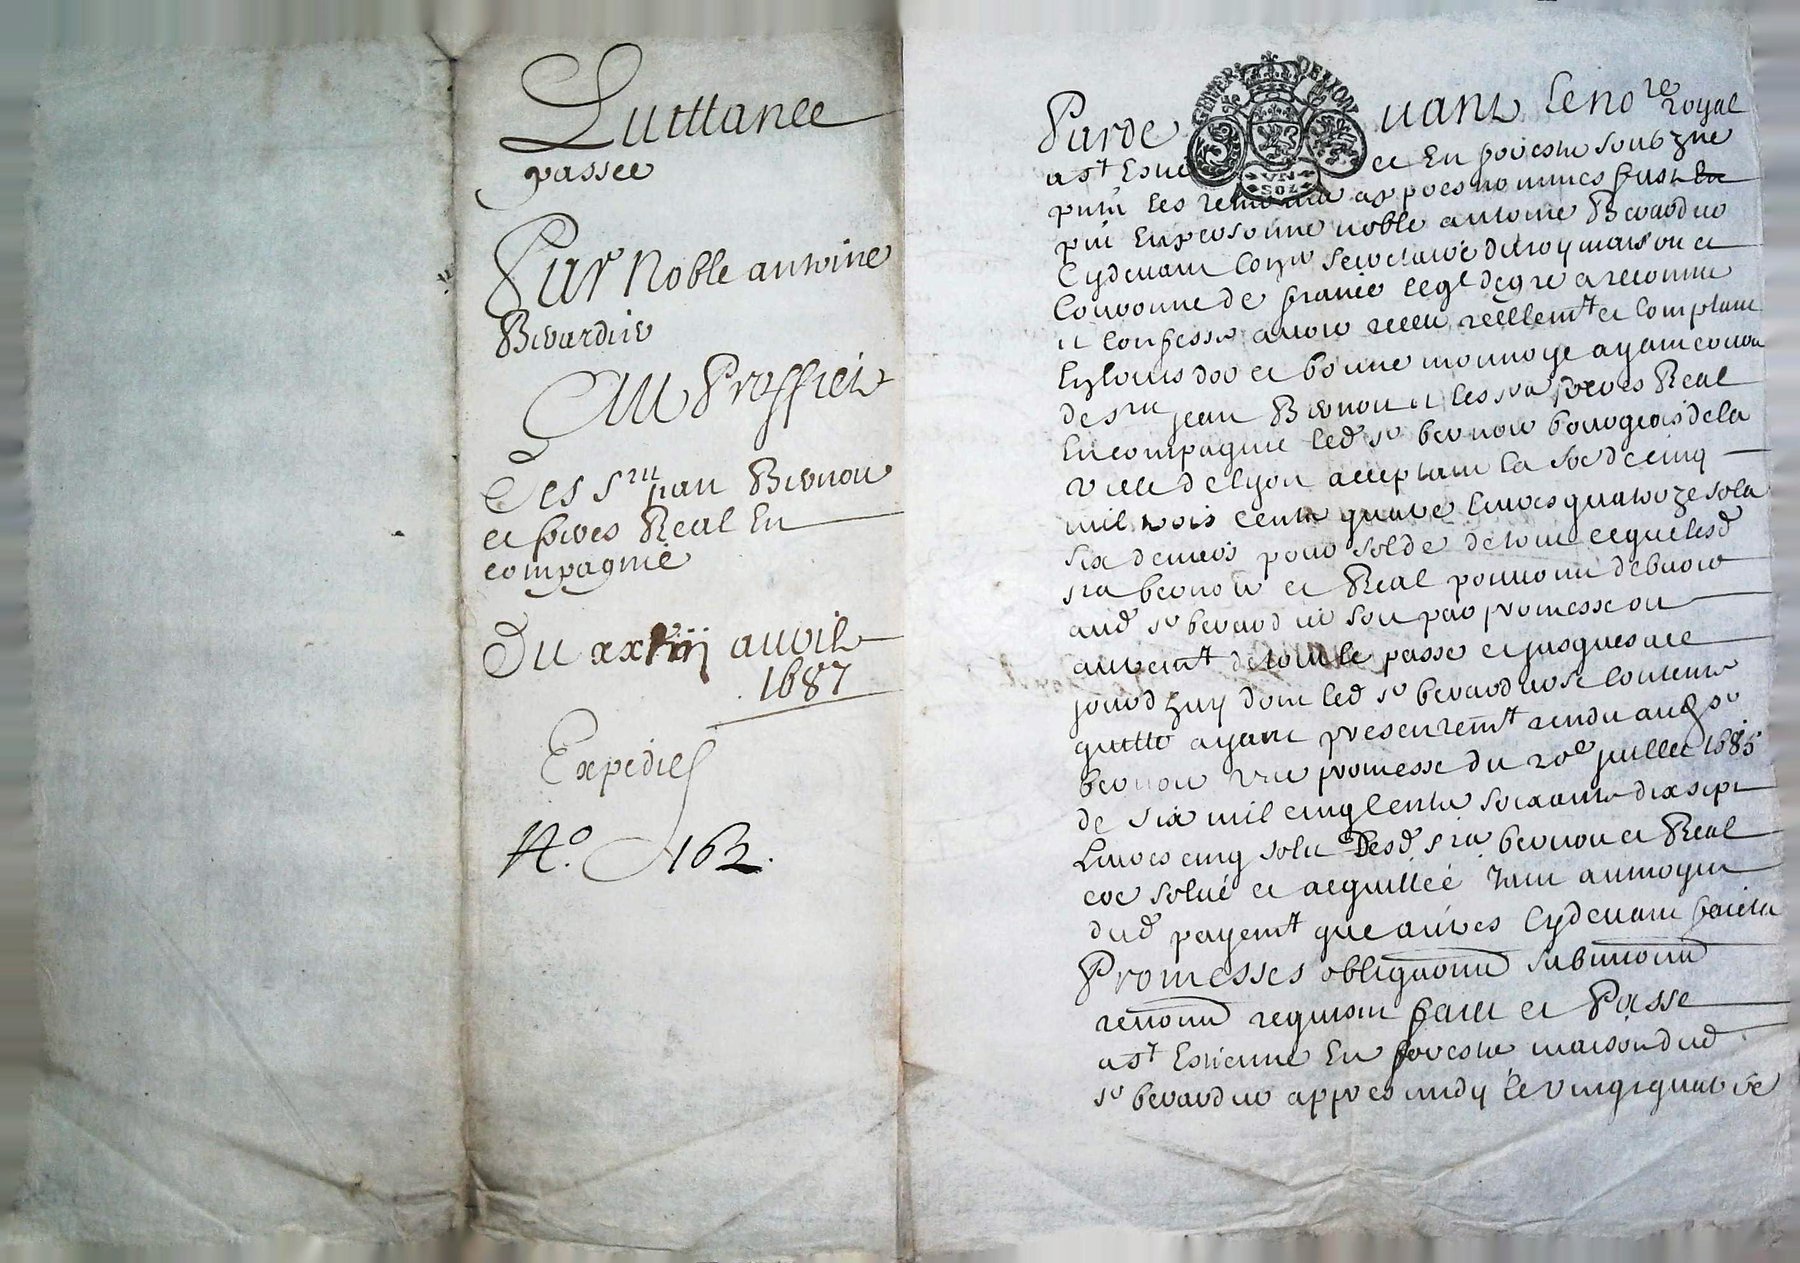 Quittance
passee
Par Noble antoine
Berardier
Au Proffict
Des Srs jean Bernou
et freres Real En
compagnie
Du xxiiij avril
1687
Expediee
No. 163.
GENER DE LION
UN
SOL
Pardevant le nore royal
a st Estienne et En forestz soubzne
puis les temoins appres nommes fust
pnt En personne noble antoine Berardier
Cydevant Conr secretaire du roy maison et
Couronne de france legl de gre a reconnu
et Confesse avoir receu reellemt et Comptant
En louis dor et bonne monnoye ayant cours
des srs jean Bernou et les srs freres Real
En compagnie led sr bernou bourgeois de la
ville de lyon acceptant la soe de cinq
mil trois Cents quatre livres quatorze solz
six deniers pour solde de tout ce que lesd
srs bernou et Real pouvoint debvoir
aud sr berardier soit par promesse ou
autremt de tout le passe et jusques a ce
jourdhuy dont led sr berardier se Contente
quitte ayant presentemt rendu aud sr
bernou une promesse du 20e juillet 1685
de six mil cinq Cents soixante dix sept
Livres cinq solz Desd srs bernou et Real
soluë et acquittée tant au moyen
dud payemt que autres Cydevant faicts
Promesses obligaons submions
renons requison fait et Passe
a st Estienne En forestz maison dud
sr berardier appres midy le vingt quatre